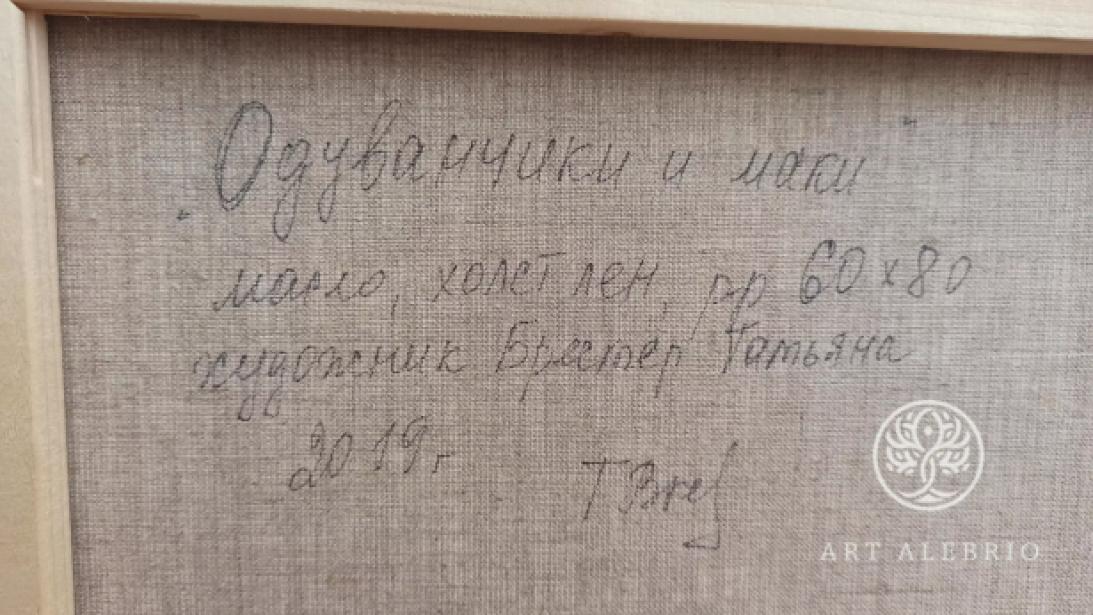 „Одуванчики и маки"
масло, холст лен, рр 60х80
художник Брестер Татьяна
2019г
T Bres
ART ALEBRIO